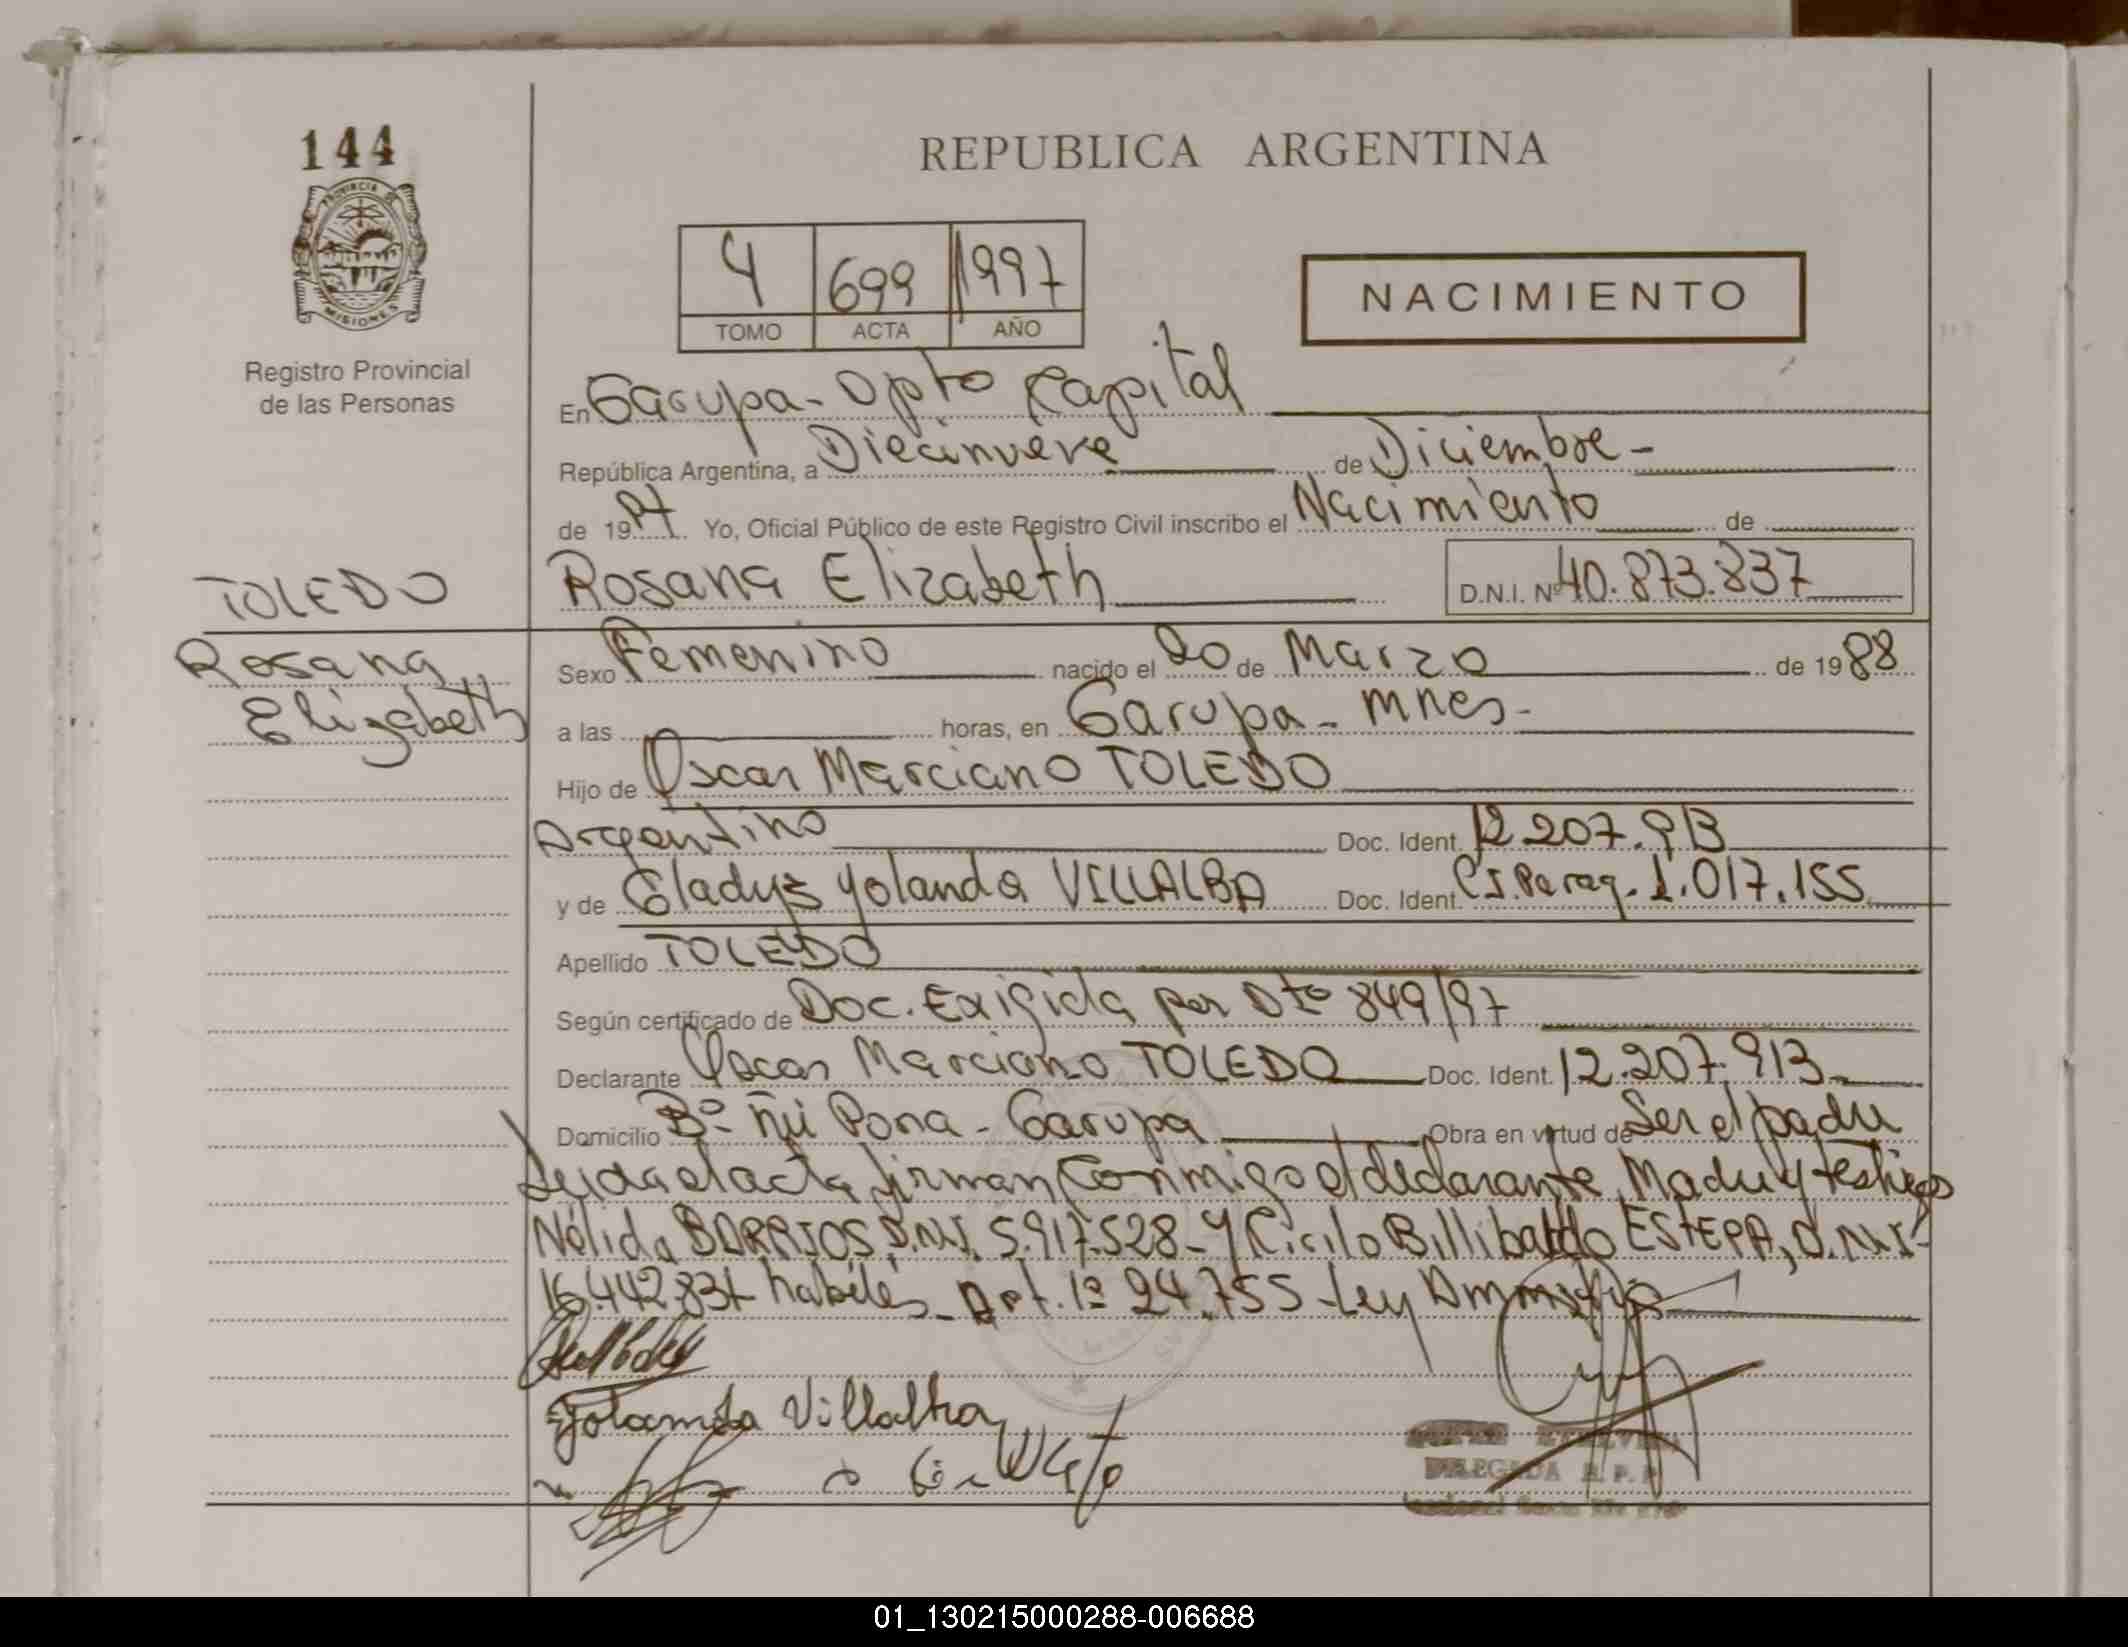 144
PROVINCIA DE
MISIONES
Registro Provincial
de las Personas
REPUBLICA ARGENTINA
4 699 1997
TOMO ACTA AÑO
NACIMIENTO
En Garupa - Dpto Capital
República Argentina, a Diecinueve de Diciembre -
de 1997 Yo, Oficial Público de este Registro Civil inscribo el Nacimiento de
TOLEDO Rosana Elizabeth D.N.I. Nº 40.873.837
Rosana Sexo Femenino nacido el 20 de Marzo de 1988
Elizabeth a las horas, en Garupa - Mnes -
Hijo de Oscar Marciano TOLEDO
Argentino Doc. Ident. 12.207.913
y de Gladys Yolanda VILLALBA Doc. Ident. CI. Parag. 1.017.155
Apellido TOLEDO
Según certificado de Doc. Exigida por Dto 849/97
Declarante Oscar Marciano TOLEDO Doc. Ident. 12.207.913
Domicilio Bº Ñú Pona - Garupa Obra en virtud de Ser el padre
Leida el acta firman conmigo el declarante, Madre y testigos
Nélida BARRIOS D.N.I. 5.917.528 - y Cirilo Billibaldo ESTEPA, D.N.I.
16.442.837 habiles - Art. 1º 24.755 - Ley Amnistía
Yolanda Villalba
DELEGADA R. P. P.
01_130215000288-006688